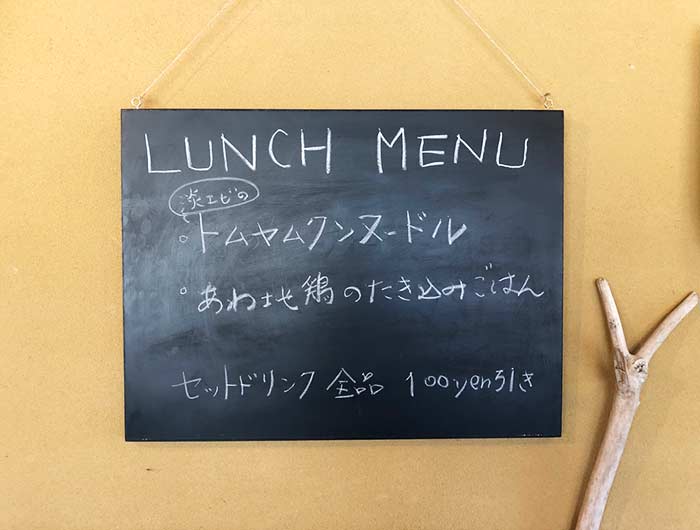 LUNCH MENU
淡エビの
。トムヤムクンヌードル
。あわ地鶏のたき込みごはん
セットドリンク 全品 100yen引き